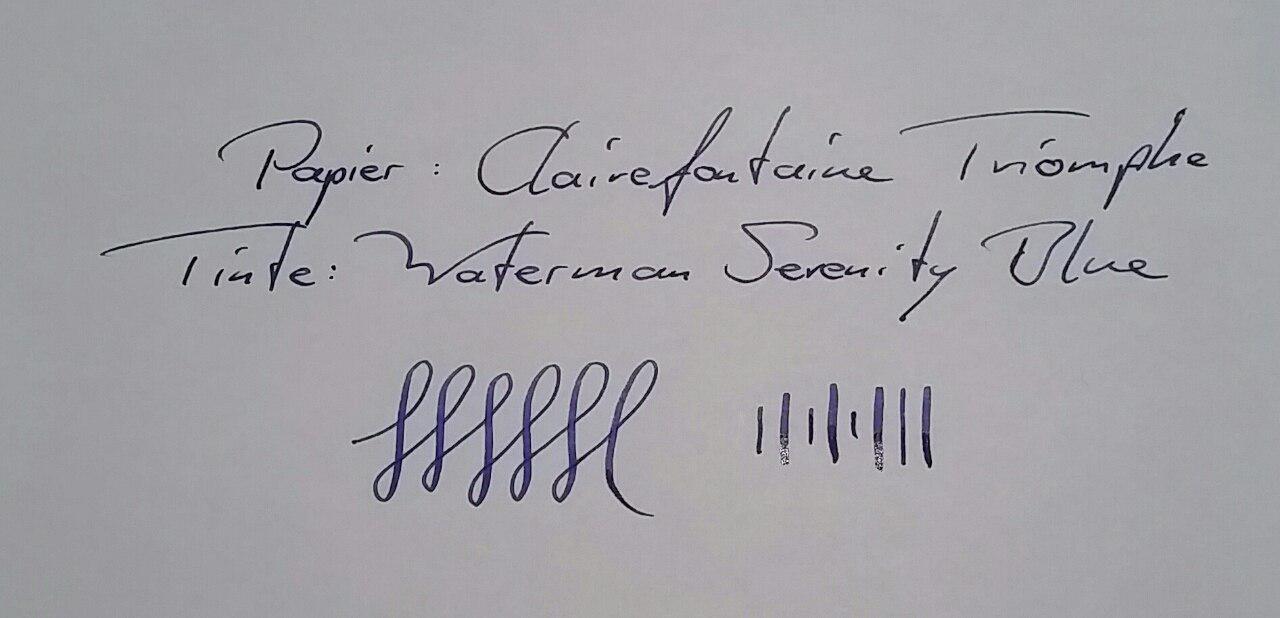 Papier: Clairefontaine Triomphe
Tinte: Waterman Serenity Blue